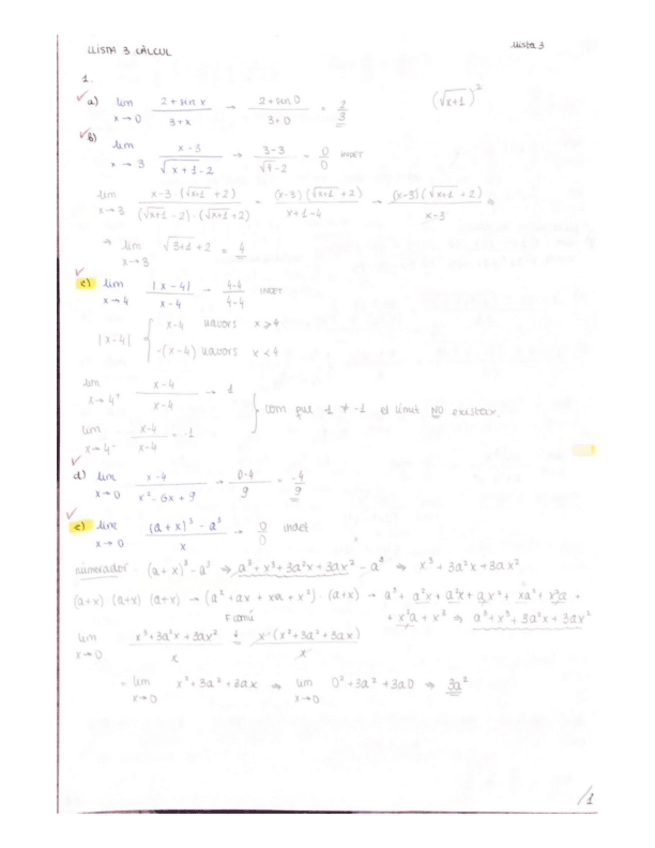 LLISTA 3 CÀLCUL
Llista 3
1.
a) lim x→0 2+sin x / 3+x → 2+sin 0 / 3+0 = 2/3
(√x+1)²
b) lim x→3 x-3 / √x+1-2 → 3-3 / √4-2 = 0/0 INDET
lim x→3 x-3·(√x+1+2) / (√x+1-2)·(√x+1+2) = (x-3)(√x+1+2) / x+1-4 → (x-3)(√x+1+2) / x-3 ⇒
⇒ lim x→3 √3+1+2 = 4
c) lim x→4 |x-4| / x-4 → 4-4 / 4-4 INDET
|x-4| { x-4 llavors x⩾4
-(x-4) llavors x<4
lim x→4⁺ x-4 / x-4 → 1
} com que 1 ≠ -1 el límit NO existeix.
lim x→4⁻ x-4 / x-4 = -1
d) lim x→0 x-4 / x²-6x+9 → 0-4 / 9 = -4/9
e) lim x→0 (a+x)³-a³ / x → 0/0 indet
numerador (a+x)³-a³ ⇒ a³+x³+3a²x+3ax²-a³ ⇒ x³+3a²x+3ax²
(a+x)(a+x)(a+x) → (a²+ax+xa+x²)·(a+x) → a³+a²x+a²x+ax²+xa²+x²a+
+x²a+x³ ⇒ a³+x³+3a²x+3ax²
F comú
lim x→0 x³+3a²x+3ax² / x = x(x²+3a²+3ax) / x
= lim x→0 x²+3a²+3ax ⇒ lim x→0 0²+3a²+3a0 ⇒ 3a²
/1